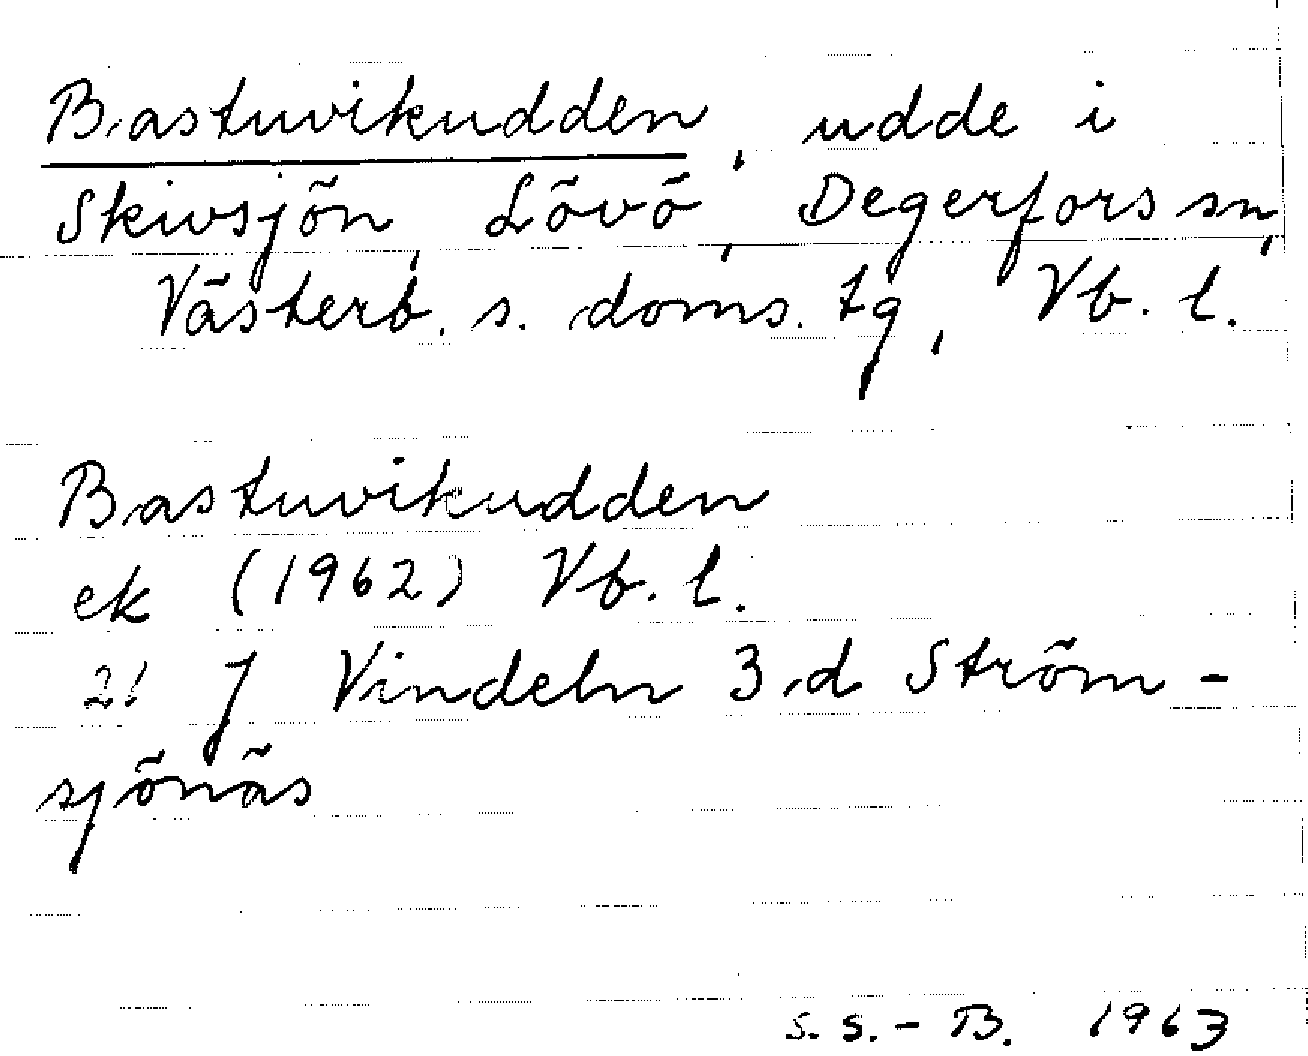 Bastuvikudden, udde i
Skivsjön, Lövö, Degerfors sn,
Västerb. s. doms. tg, Vb. l.
Bastuvikudden
ek (1962) Vb. l.
21 J Vindeln 3 d Ström-
sjönäs
S. S. - B. 1963